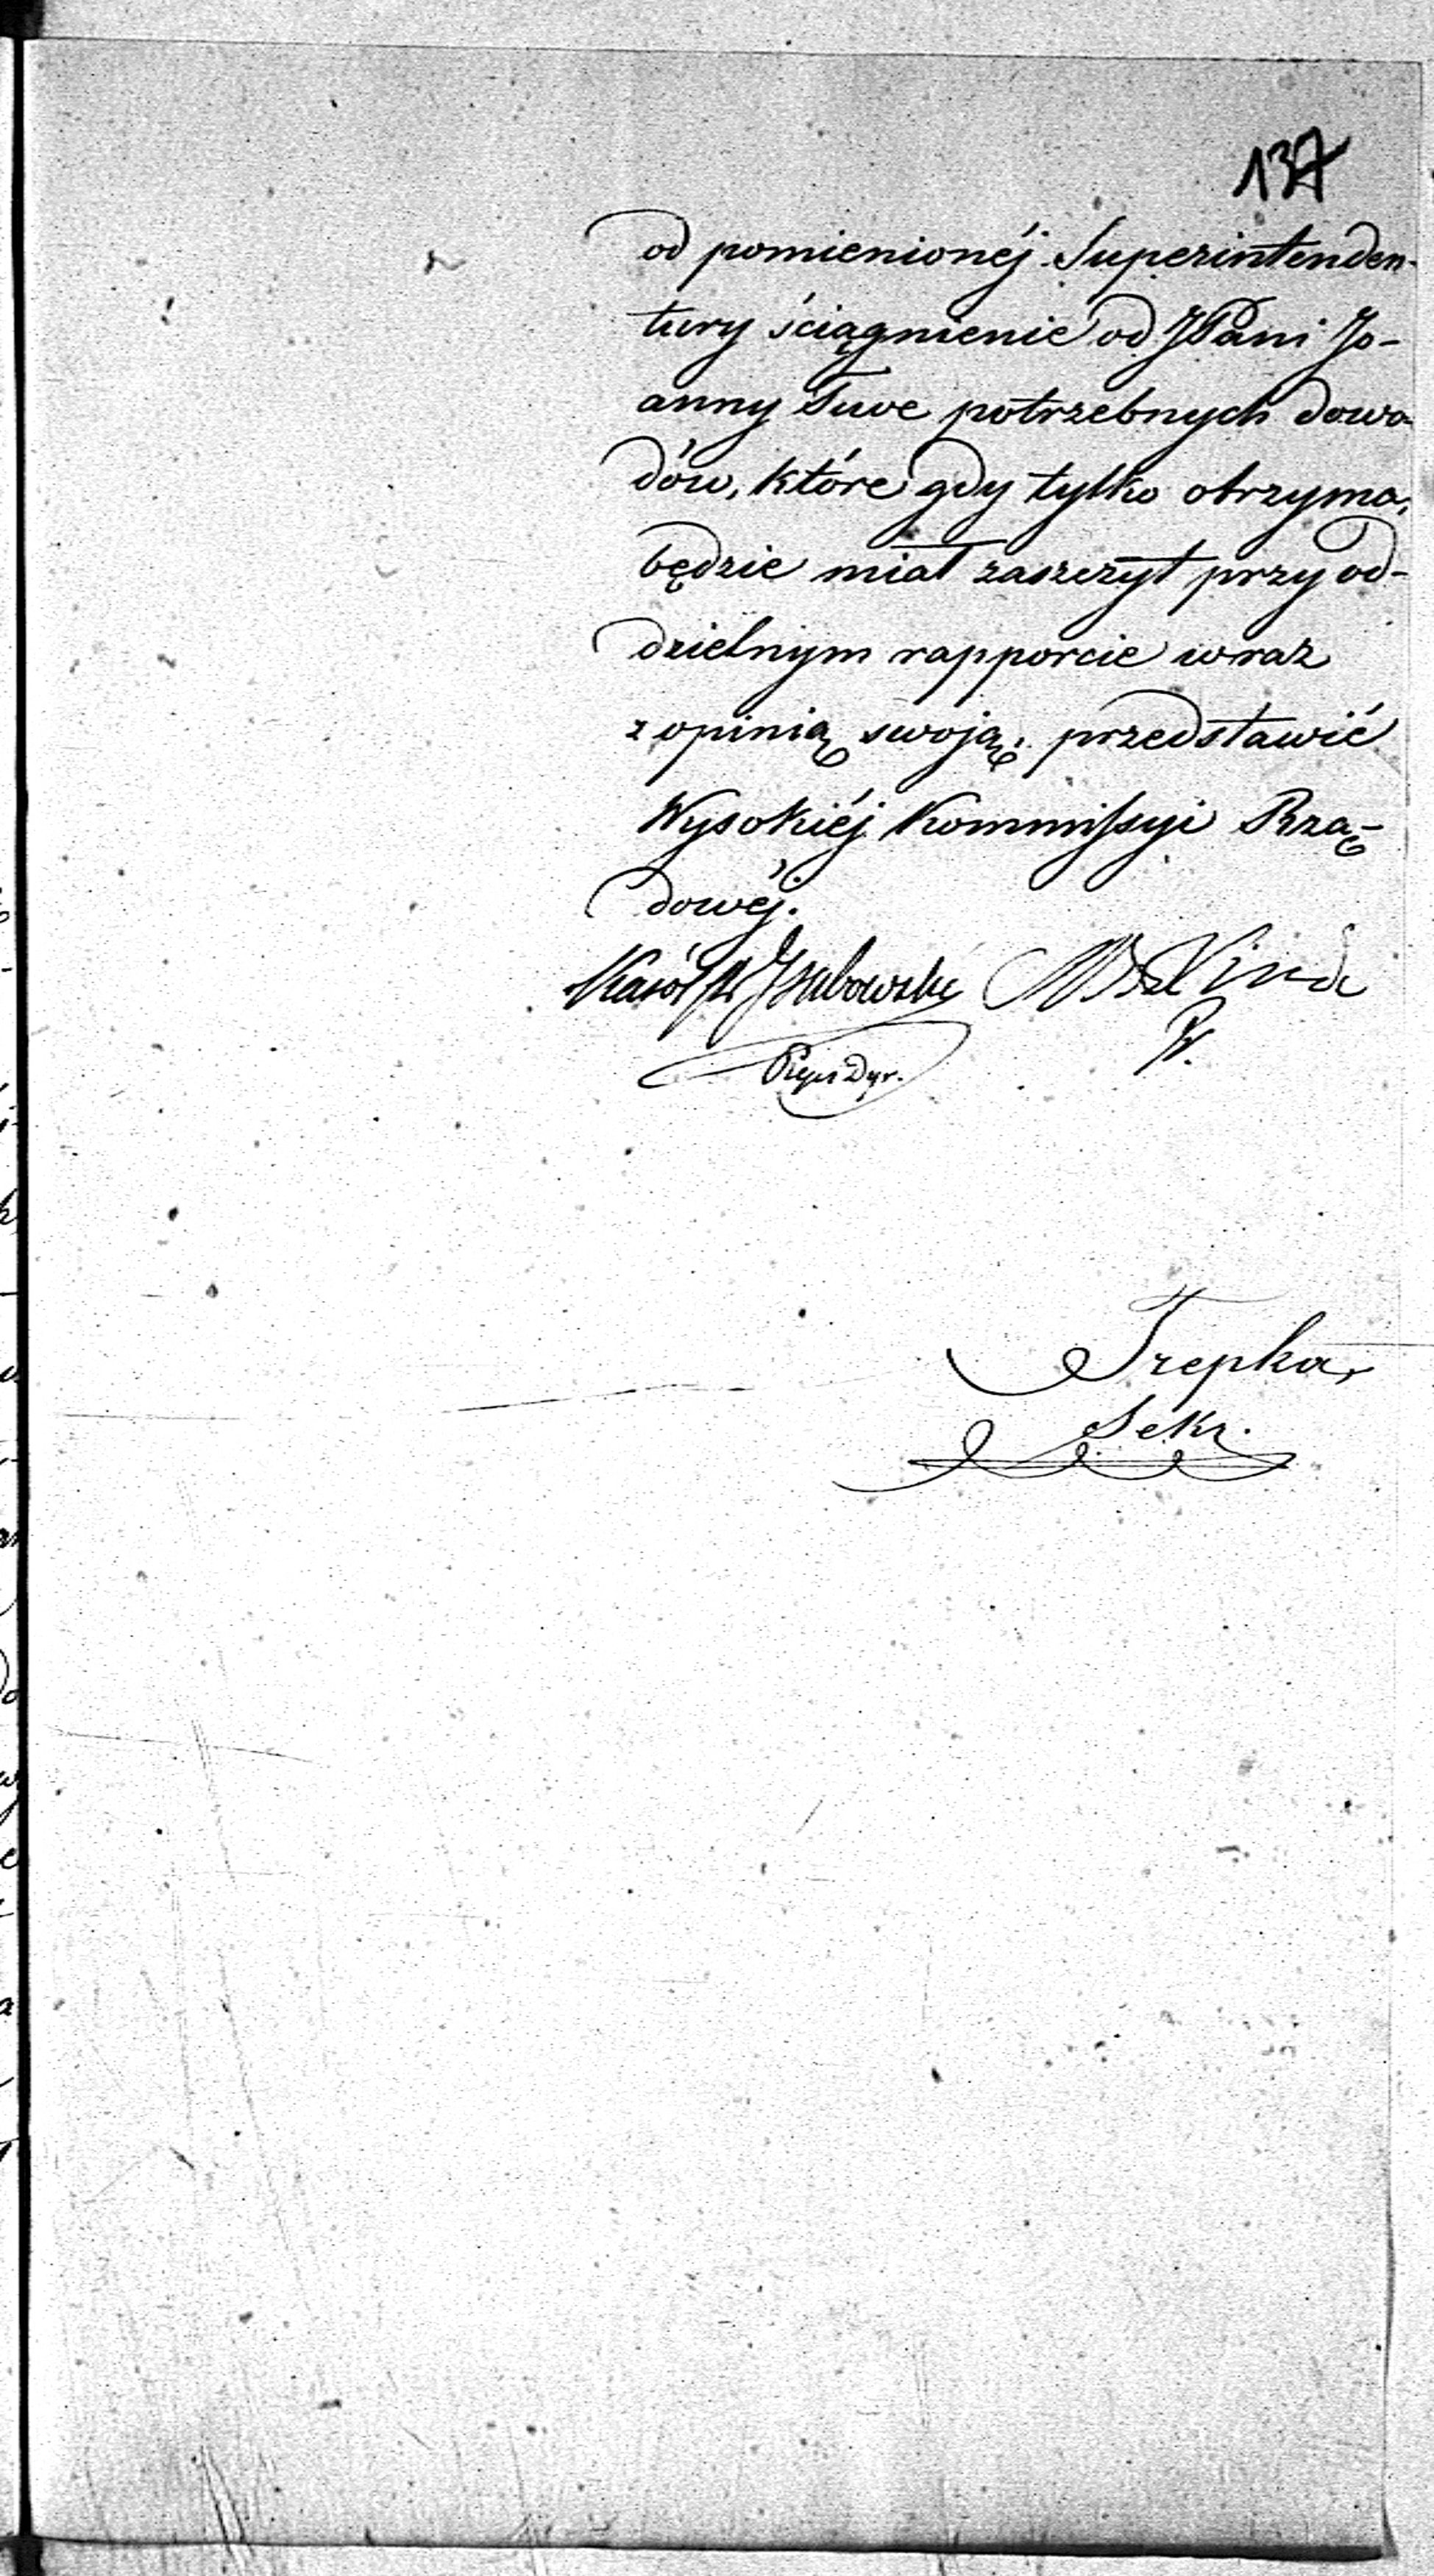 137
od pomienionéj Superintenden-
tury ściągnienie od JPani Jo-
anny Tuve potrzebnych dowo-
dów, które gdy tylko otrzyma,
będzie miał zaszczyt przy od-
dzielnym rapporcie wraz
z opinią swoją, przedstawić
Wysokiéj Kommissyi Rzą-
dowéj.
Karól Grabowski
Dyr.
Trepka
Sekr.